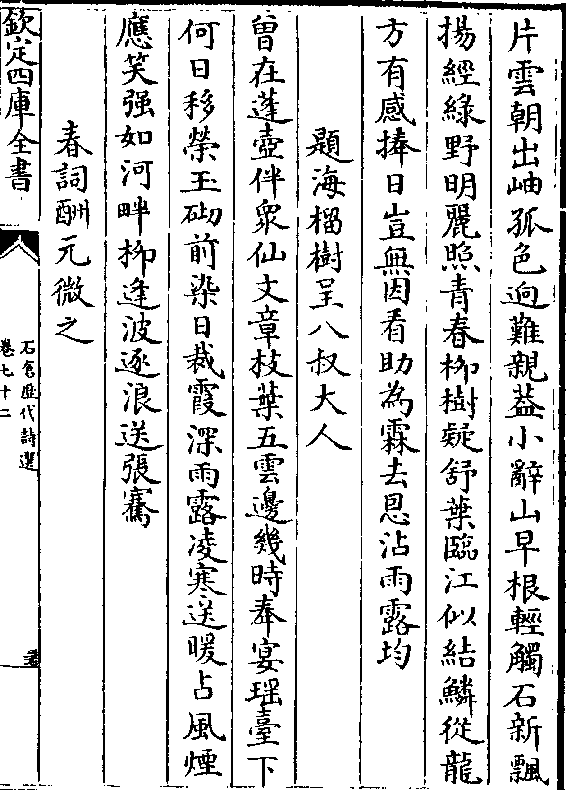 片雲朝出岫孤色迥難親葢小辭山早根輕觸石新飄
揚經綠野明麗照青春柳樹疑舒葉臨江似結鱗從龍
方有感捧日豈無因看助為霖去恩沾雨露均
題海榴樹呈八叔大人
曽在蓬壺伴衆仙文章枝葉五雲邊幾時奉宴瑶臺下
何日移榮玉砌前染日裁霞深雨露凌寒送暖占風煙
應笑强如河畔柳逢波逐浪送張騫
春詞酬元微之
欽定四庫全書
石倉歴代詩選
卷七十二